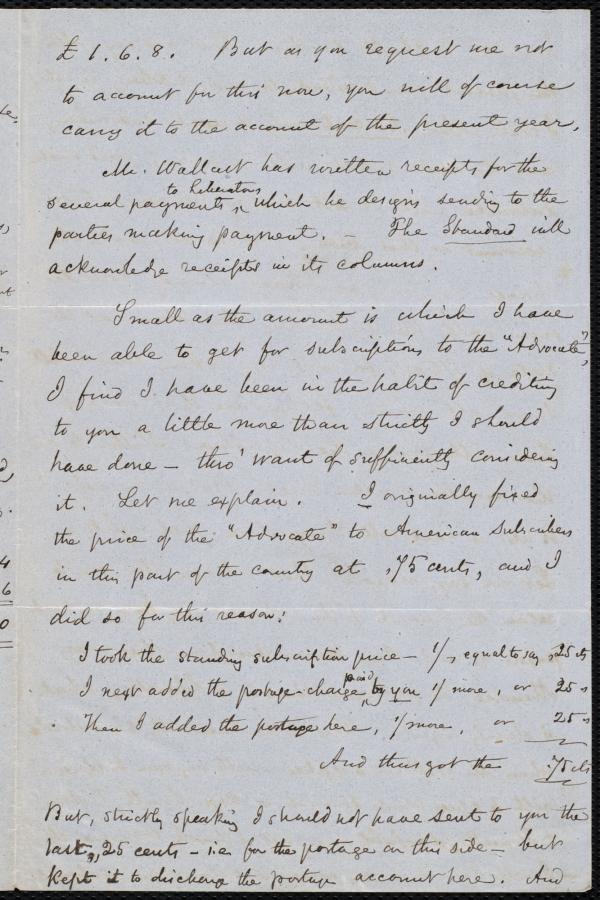 £ 1. 6. 8. But as you request me not
to account for this now, you will of course
carry it to the account of the present year.
Mr. Wallcut has written receipts for the
to Liberators
several payments ^ which he designs sending to the
parties making payment. — The Standard will
acknowledge receipts in its columns.
Small as the amount is which I have
been able to get for subscriptions to the "Advocate",
I find I have been in the habit of crediting
to you a little more than strictly I should
have done — thro' want of sufficiently considering
it. Let me explain. I originally fixed
the price of the "Advocate" to American subscribers
in this part of the country at ,75 cents, and I
did so for this reason:
I took the standing subscription price — 1/, equal to say ,25 cts
paid
I next added the postage-charge ^ by you 1/ more, or 25 "
Then I added the postage here, 1/ more, or 25 "
And thus got the .75 cts
But, strictly speaking I should not have sent to you the
last, 25 cents — i.e. for the postage on this side — but
kept it to discharge the postage account here. And
4
6
0